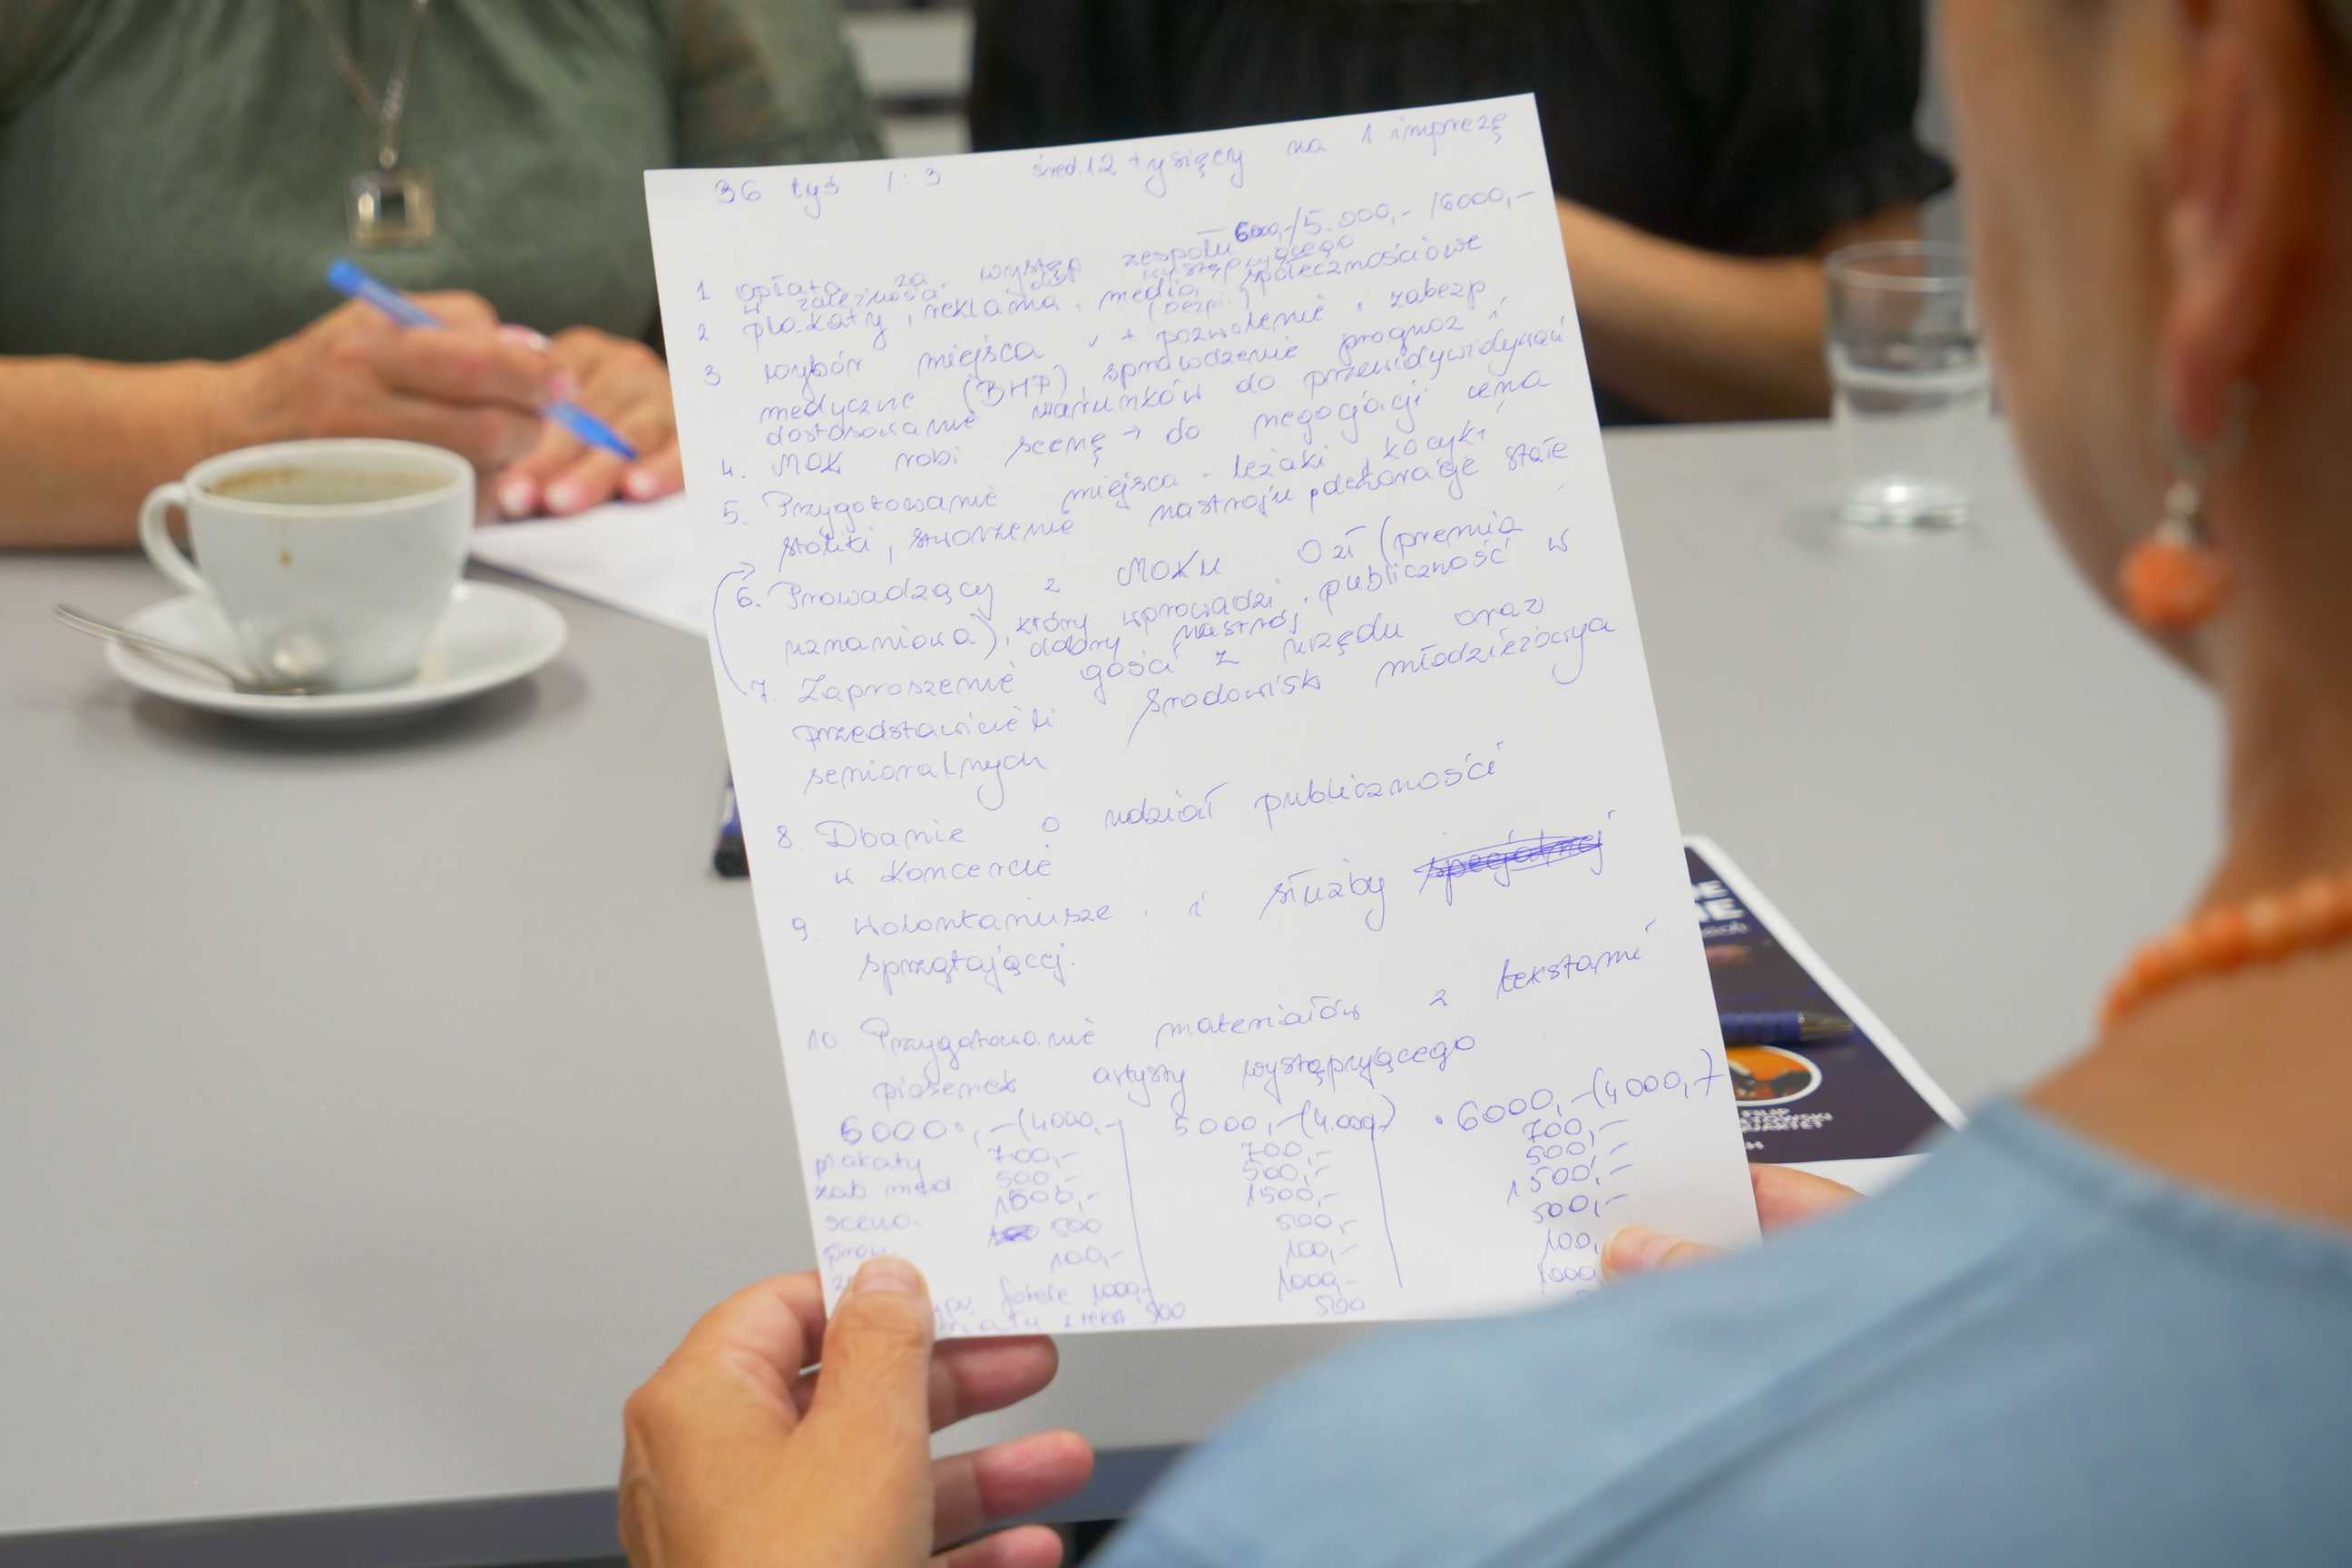 36 tyś 1:3 śred. 12 tysięcy na 1 imprezę
1 opłata za występ zespołu – 6000,-/5.000,- /6000,-
w zależności od występującego
2 plakaty, reklama, media społecznościowe
(bezpł.)
3 wybór miejsca, + pozwolenie i zabezp.
medyczne (BHP), sprawdzenie prognoz i
dostosowanie warunków do
4. MOK robi scenę → do negocjacji cena
5. Przygotowanie miejsca - leżaki, kocyki,
stoliki, stworzenie nastroju, dekoracje stałe
6. Prowadzący z MOKu 0 zł (premia
uznaniowa), który wprowadzi publiczność w
dobry nastrój
7. Zaproszenie gości z urzędu oraz
przedstawicieli środowisk
senioralnych
8. Dbanie o udział publiczności
w koncercie
9. Wolontariusze i służby specjalnej
sprzątającej.
10. Przygotowanie materiałów z tekstami
piosenek artysty występującego
6000,-(4000,-) 5000,-(4.000) 6000,-(4000,-)
plakaty 700,- 700,- 700,-
zab med. 500,- 500,- 500,-
scena 1500,- 1500,- 1500,-
500 500,- 500,-
100,- 100,- 100,
fotele 1000,- 1000,- 1000
500 500
FILIP